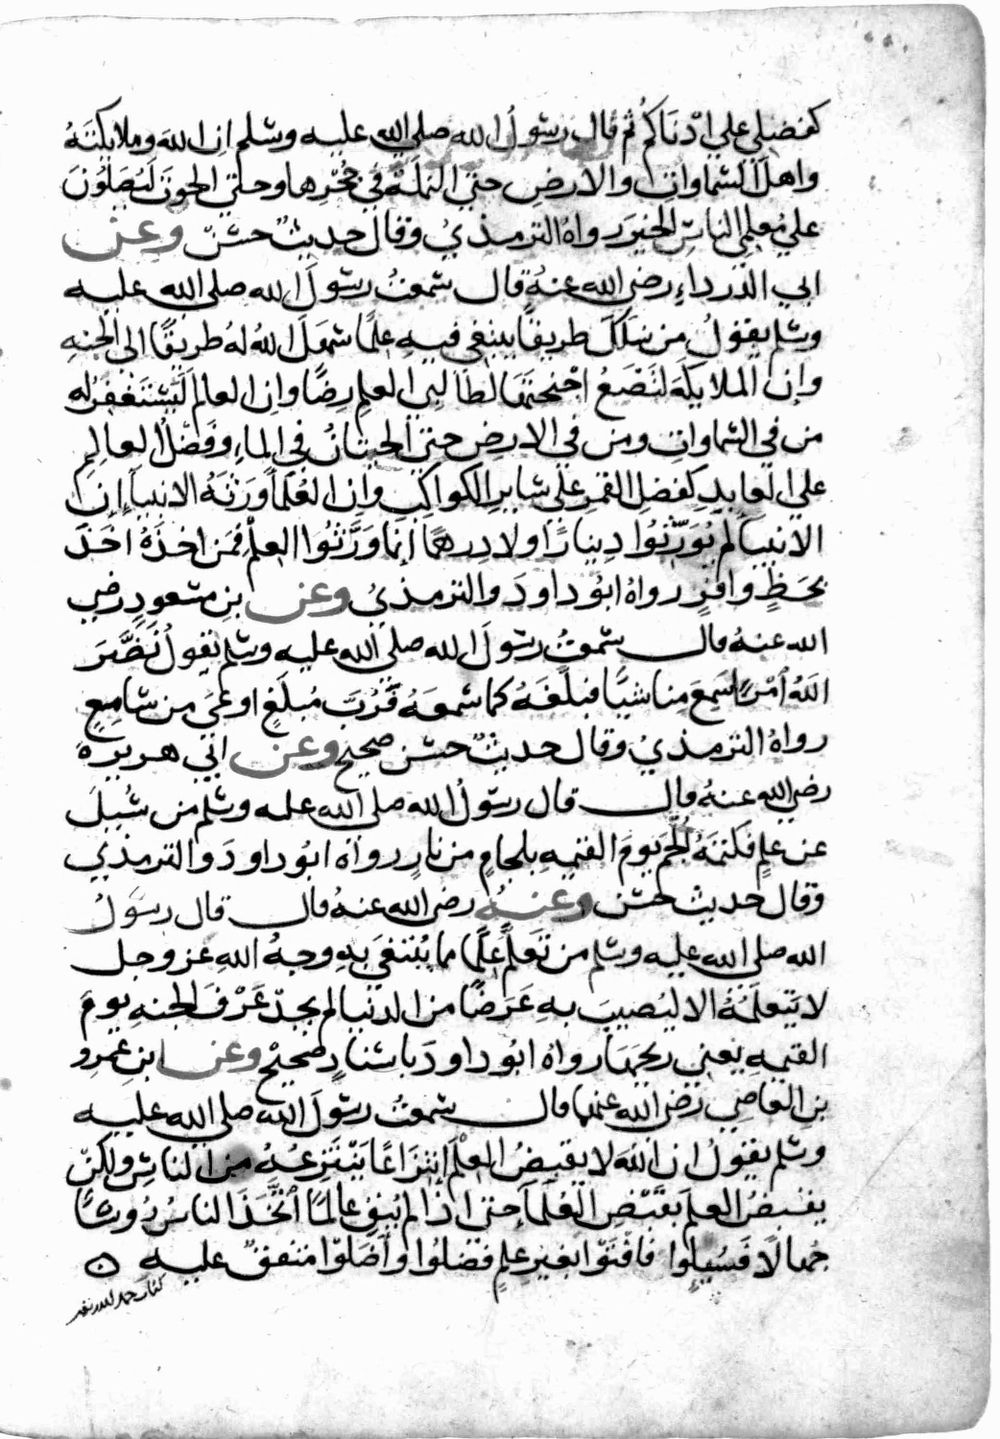 كفضلي علي ادْنَاكُم ثم قال رسُولُ الله صلي الله عليه وسلم ان الله وملايكتهُ
واهلَ السماواتِ والارضِ حتي النملَةَ في جُحْرِها وحتي الحوتَ لَيُصَلُّونَ
علي مُعلمِي الناسِ الخيرَ رواهُ الترمذيُ وقال حديثٌ حسَنٌ وعن
ابي الدرداءِ رضي الله عنهُ قال سمعتُ رسُولَ الله صلي الله عليه
وسلم يقولُ من سَلَكَ طريقًا يبتغي فيهِ علمًا سَهَّلَ اللهُ لهُ طريقًا الي الجنهِ
وان الملايكةَ لتَضَعُ اجْنحتَهَا لطالبِ العلمِ رِضًا وان العالمَ لَيَسْتَغْفِرُ لهِ
من في السماواتِ ومن في الارضِ حتي الحيتَانُ في الماءِ وفَضْلُ العالِمِ
علي العابدِ كفَضلِ القمرِ علي سَايرِ الكواكبِ وان العُلَمَآءَ ورَثةُ الانبيآءِ إن
الانبيآءَ لم يُوَرِّثُوا دِينارًا ولا دِرهمًا انما وَرَّثُوا العِلْمَ فمَن اخذَهُ اخَذَ
بحَظٍ وافرٍ رواهُ ابُو داودَ والترمذيُ وعن بنِ مسعودٍ رضي
الله عنهُ قال سمعتُ رسُولَ الله صلي الله عليه وسلم يقولُ نَضَّرَ
اللهُ امْرًأ سَمِعَ مِنا شيًا فبلَّغَهُ كما سَمعَهُ فَرُبَّ مُبلَّغٍ اوعَي من سَامِعٍ
رواهُ الترمذيُ وقال حديثٌ حسَن صحيحٌ وعن ابي هريرة
رضي الله عنهُ قال قال رسُولُ الله صلي الله عليه وسلم من سُيلَ
عن علمٍ فكتمَهُ أُلجمَ يومَ القيمهِ بلجامٍ من نارٍ رواه ابُو داودَ والترمذي
وقال حديثٌ حسَن وعنهُ رضي الله عنهُ قال قال رسُولُ
الله صلي الله عليه وسلم من تَعَلَّمَ علمًا مما يُبْتغَي بهِ وجهُ اللهِ عز وجل
لا يَتعلَّمُهُ الا ليُصيبَ بهِ عَرَضًا من الدنيا لم يجدْ عَرْفَ الجنهِ يومَ
القيمهِ يَعني ريحَهَا رواه ابُو داودَ باسْنادٍ صَحيحٍ وعن ابنِ عَمرِو
بنِ العاصِي رَضي الله عنهما قال سمعتُ رسُولَ الله صلي الله عليه
وسلم يقولُ ان اللهَ لا يقبضُ العِلْمَ انتِزَاعًا يَنْتَزِعُهُ منَ الناسِ ولكن
يقبضُ العلمَ بقَبْضِ العُلَمَآءِ حتي اذا لم يُبقِ عَالمًا اتَّخَذَ الناسُ رُوسًا
جُهالًا فَسُيلُوا فافْتَوْا بغيرِ علمٍ فضلُوا واَضَلّوا متفقٌ عليه ٥